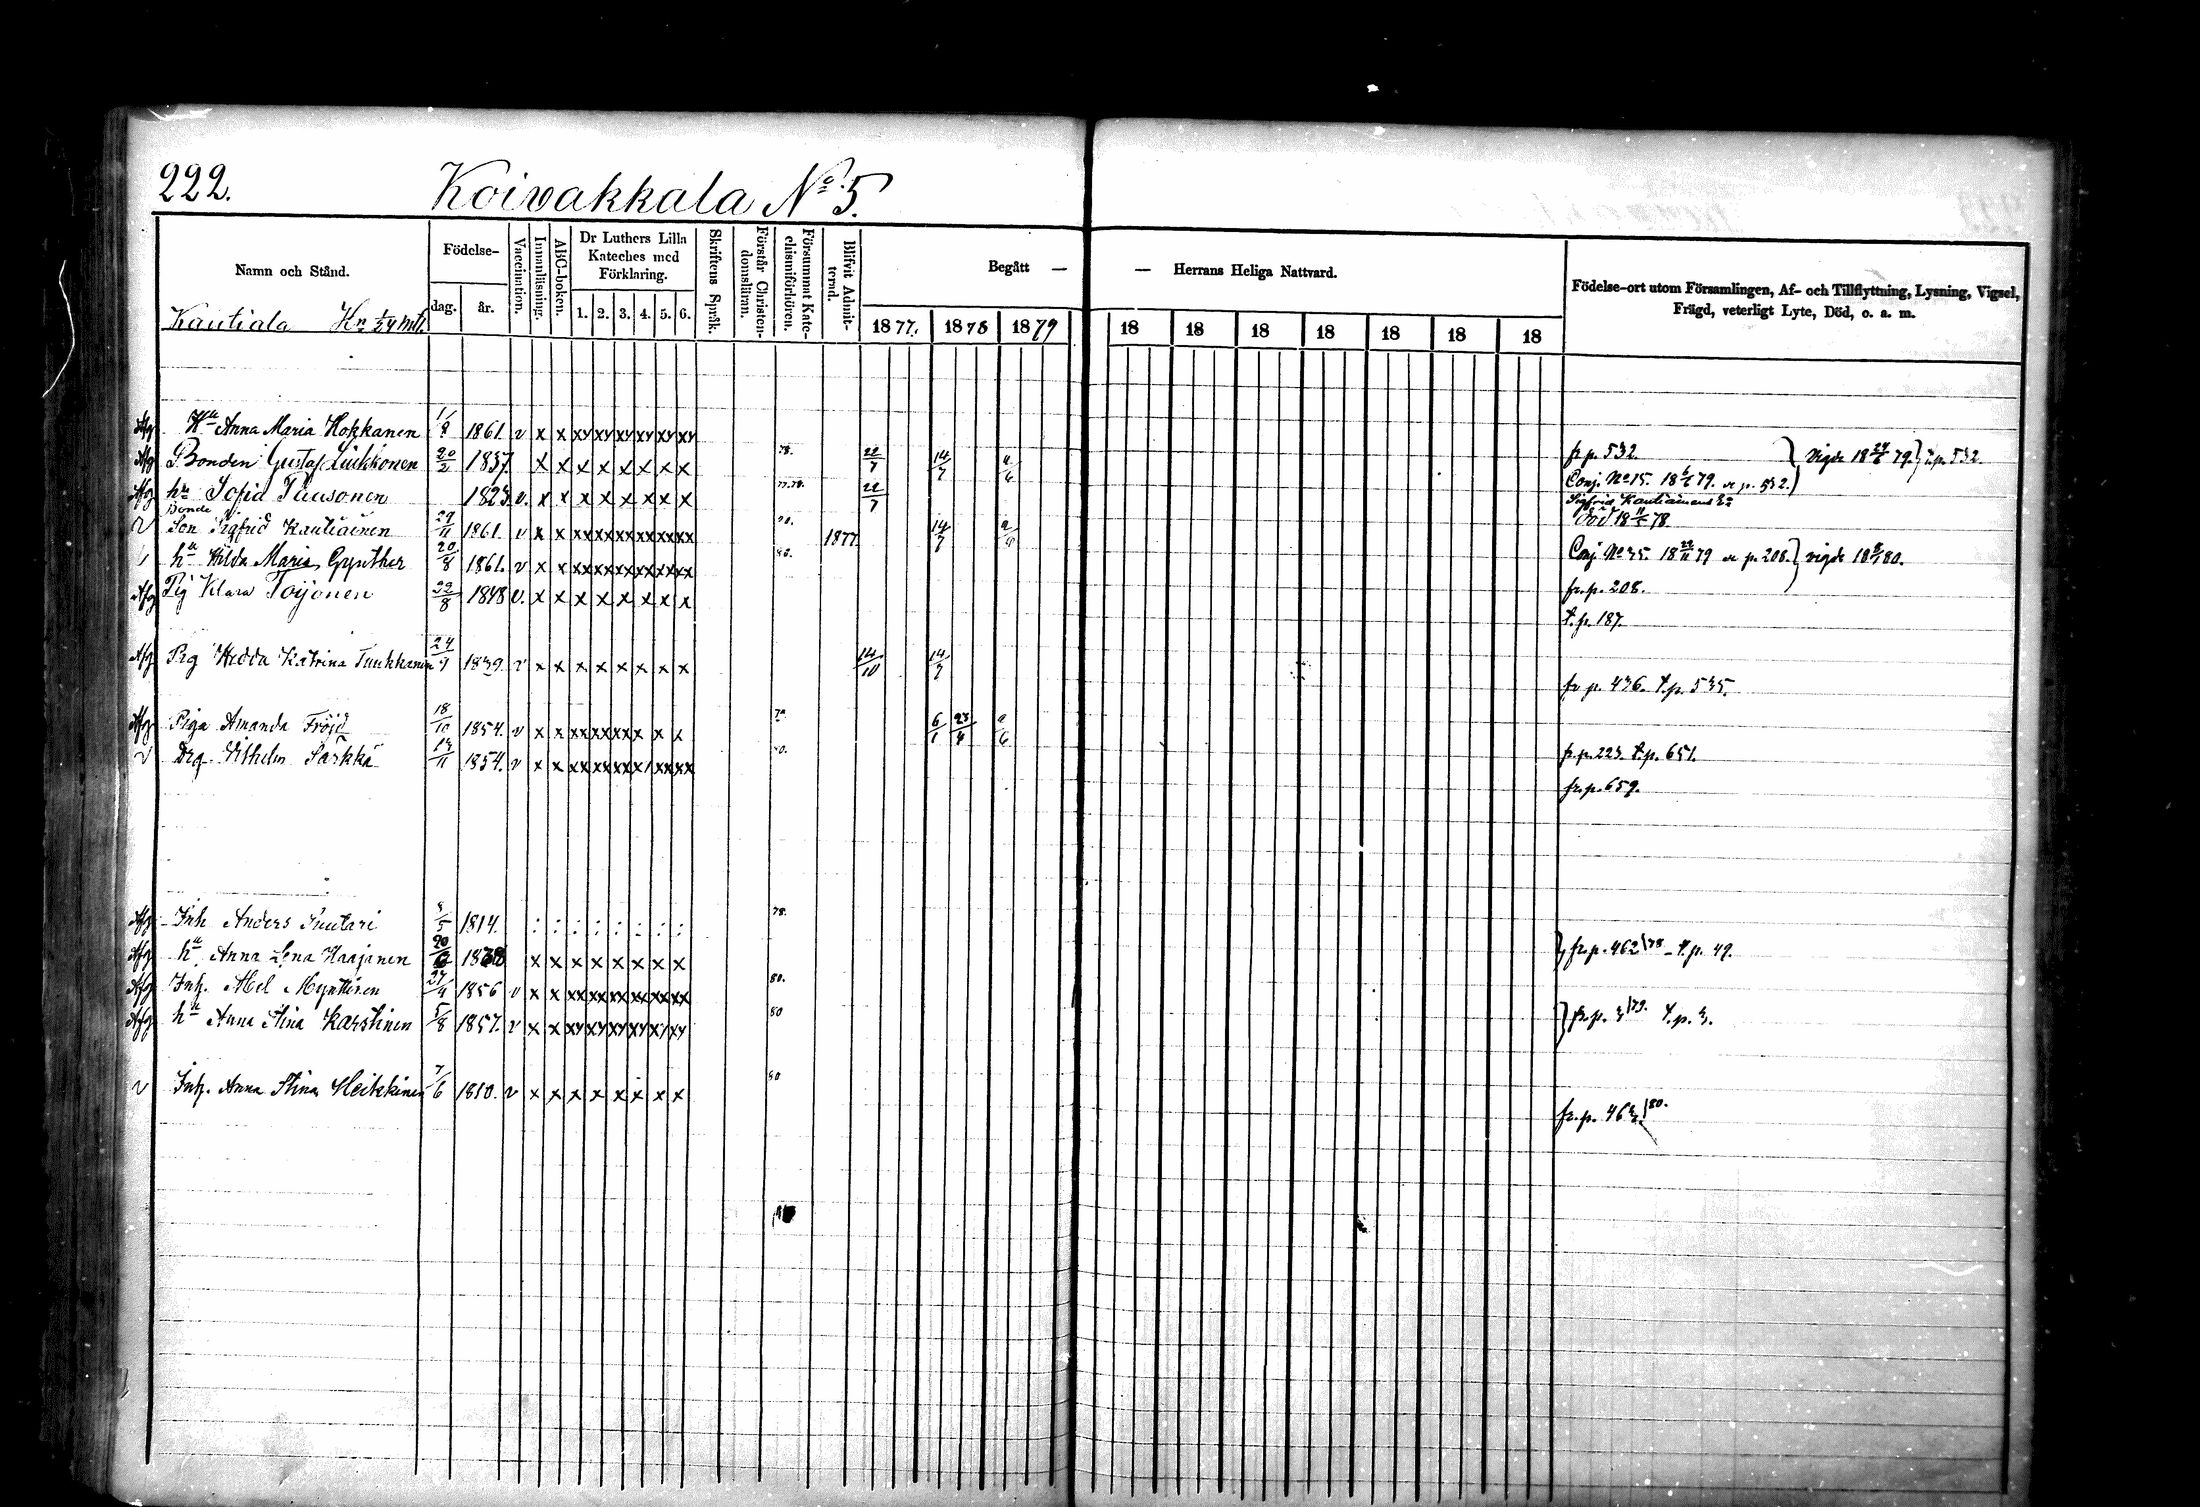 222. Koivakkala No 5.
Namn och Stånd.
Födelse-
dag. år.
Vaccination.
Innanläsning.
ABC-boken.
Dr Luthers Lilla Kateches med Förklaring.
1. 2. 3. 4. 5. 6.
Skriftens Språk.
Förstår Christendomsläran.
Försummat Katechismiförhören.
Blifvit Admitterad.
Begått — — Herrans Heliga Nattvard.
1877. 1878 1879 18 18 18 18 18 18 18
Födelse-ort utom Församlingen, Af- och Tillflyttning, Lysning, Vigsel,
Frägd, veterligt Lyte, Död, o. a. m.
Kautiala Hn 1/24 mtl.
Afg Hu Anna Maria Hokkanen 1/8 1861. v x x xy xy xy xy xy xy fr p. 532.
Afg Bonden Gustaf Liukkonen 20/2 1837. x x x x x x x x 78. 22/7 14/7 a/6 Conj. No 15. 18 79. p. 532. Vigde 18 79. t.p. 532.
Afg hu Sofia 1823. v. x x x x x x x x 77.78. 22/7 Sigfrid Kautiainens Död 18 78.
v Bonde
Son Sigfrid Kautiainen 29/11 1861. v x x xx xx xx xx xx xx 80. 1877. 14/7 Conj No 35. 18 22/11 79 p. 208. vigde 18 80.
hu Hilda Maria Gynther 20/8 1861. v x x xx xx xx xx xx xx 80. fr. p. 208.
Afg Pig Klara Toijonen 1848 v. x x x x x x x x t. p. 187.
Afg Pig Hedda Katrina Tuukkanen 24/9 1839. v x x x x x x x x 14/10 14/7 fr p. 436. t.p. 535.
Afg Piga Amanda Fröjd 18/10 1854. v x x xx xx xx x x x 6/1 23/4 a/6 fr. p. 223. t.p. 651.
v Drg Vilhelm Särkkä 1854. v x x xx xx xx x xx xx 80. fr. p. 659.
Afg Inh Anders Suutari 1814. : : : : : : : : 78.
Afg hu Anna Lena Haajanen 20/6 x x x x x x x x fr. p. 462/78 - t. p. 49.
Afg Inh. Abel Mynttinen 27/4 1856 v x x xx xx xx xx xx xx 80.
Afg hu Anna Stina Karstinen 5/8 1857. v x x xy xy xy xy xy xy 80 fr. p. 3/79. t. p. 3.
v Inh. Anna Stina Heikkinen 7/6 1810. v x x x x x x x x 80 fr. p. 463/80.